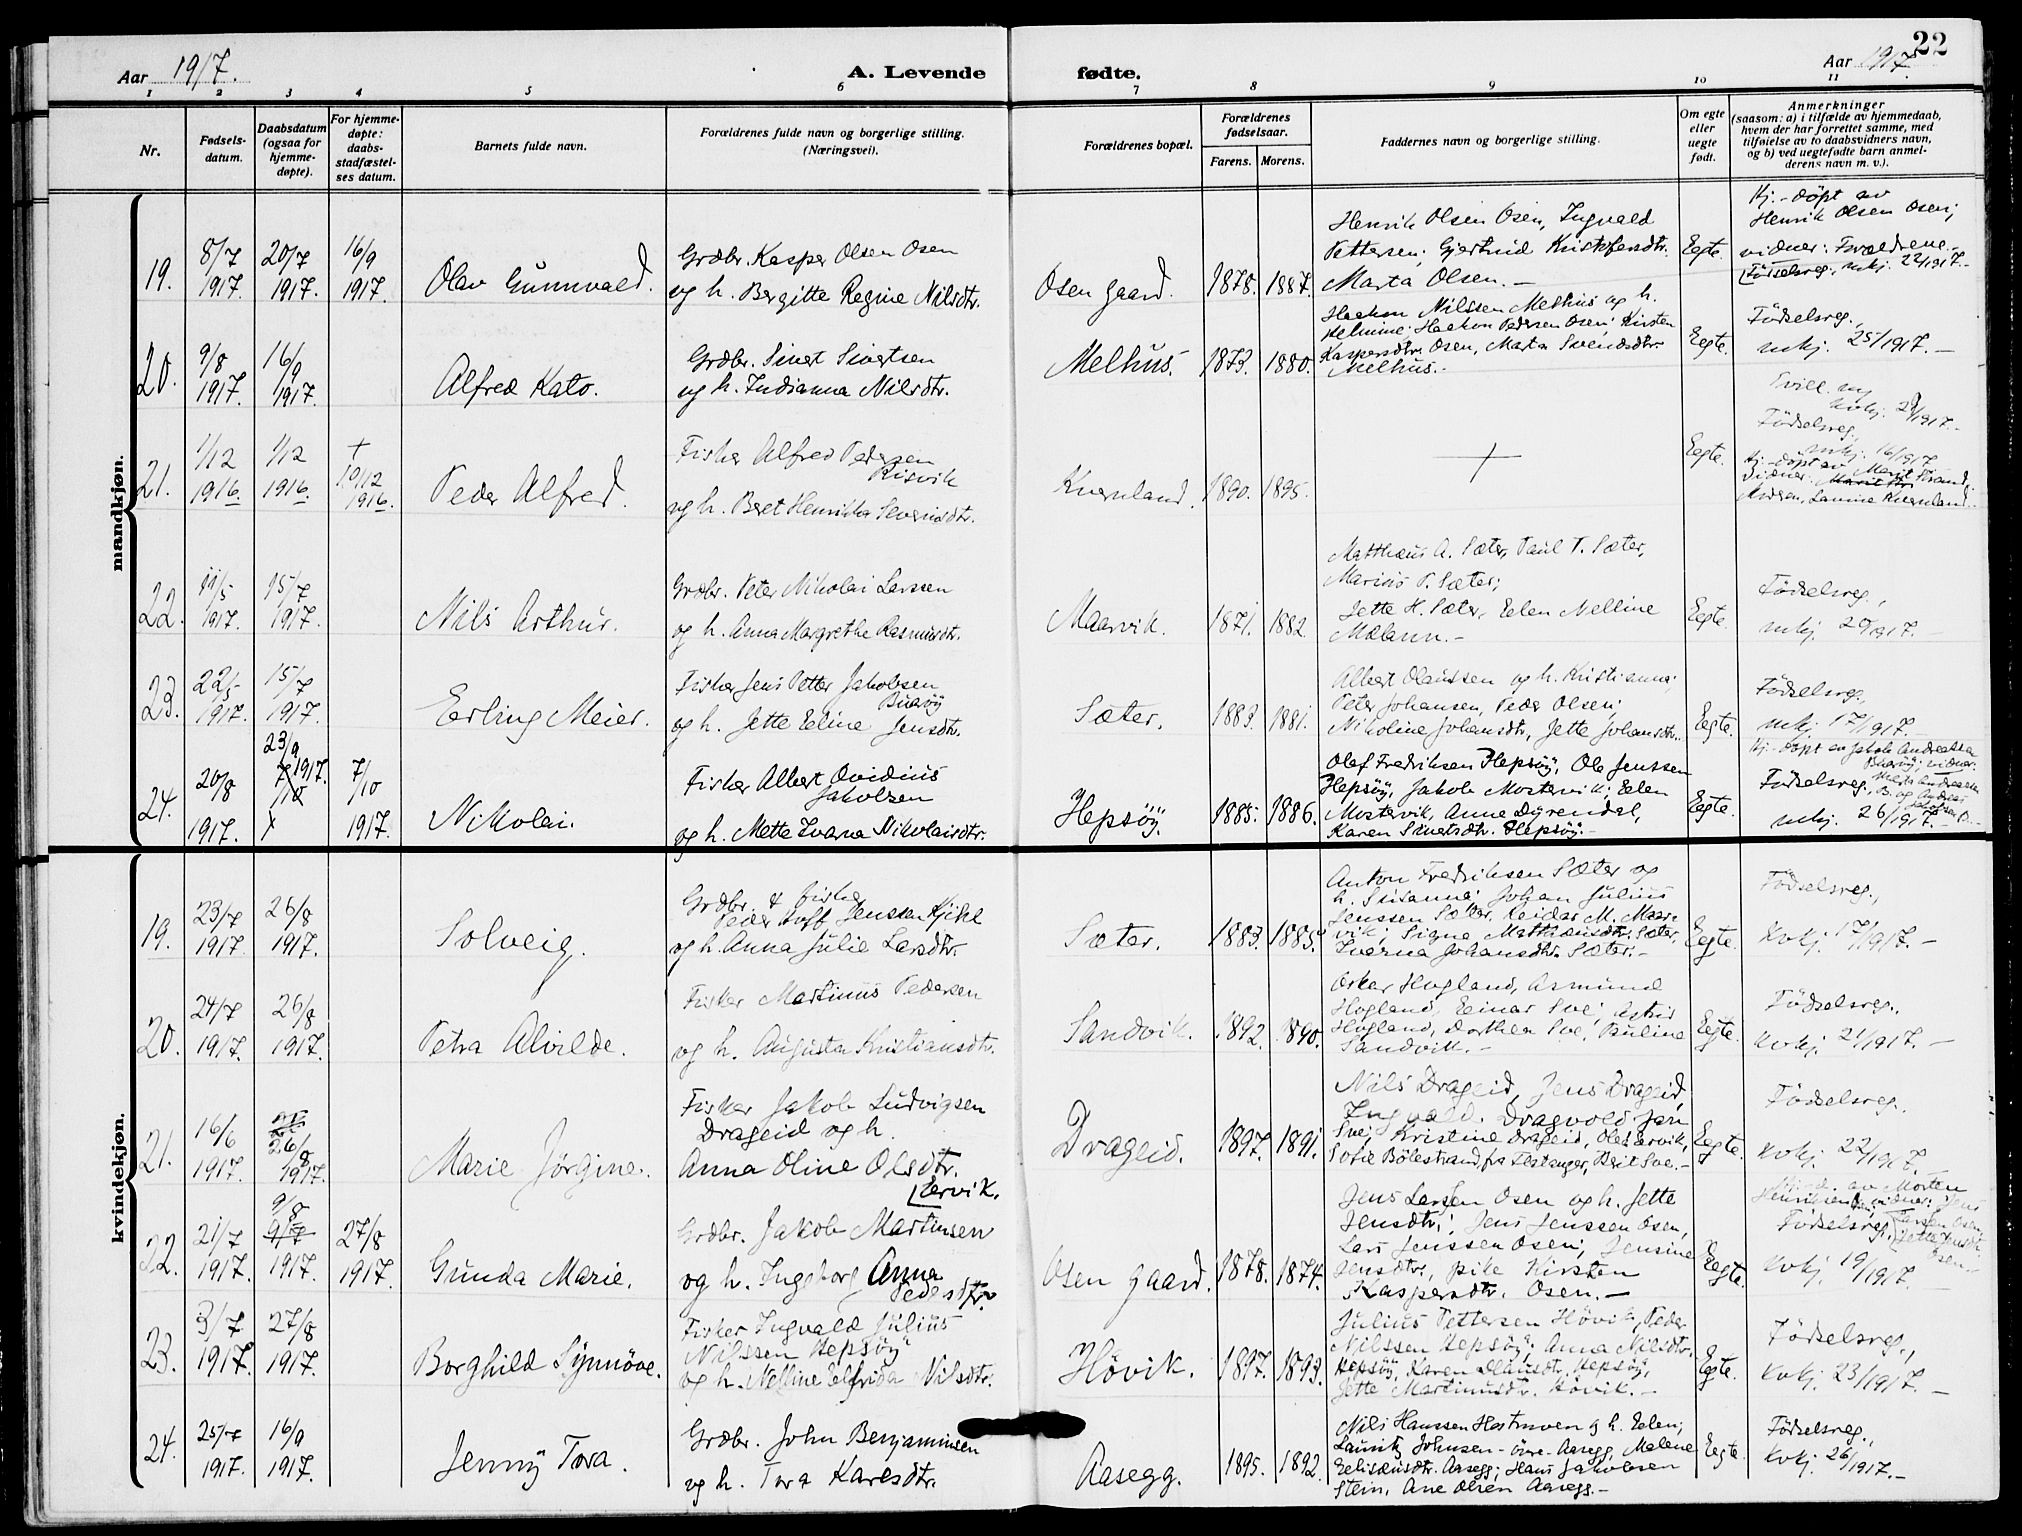 22
Aar 1917.
A. Levende fødte.
Aar 1917.
1 2 3 4 5 6 7 8 9 10 11
Nr.
Fødsels-
datum.
Daabsdatum
(ogsaa for
hjemme-
døpte).
For hjemme-
døpte:
daabs-
stadfæstel-
ses datum.
Barnets fulde navn.
Forældrenes fulde navn og borgerlige stilling.
(Næringsvei).
Forældrenes bopæl.
Forældrenes
fødselsaar.
Farens. Morens.
Faddernes navn og borgerlige stilling.
Om egte
eller
uegte
født.
Anmerkninger
(saasom: a) i tilfælde av hjemmedaab,
hvem der har forrettet samme, med
tilføielse av to daabsvidners navn,
og b) ved uegtefødte barn anmel-
derens navn m. v.).
mandkjøn.
19.
8/7
1917.
20/7
1917.
16/9
1917.
Olav Gunnvald.
Grdbr. Kasper Olsen Osen
og h. Bergitte Regine Nilsdtr.
Osen gaard.
1878. 1887.
Henrik Olsen Osen, Ingvald
Pettersen; Gjertrud Kristofersdtr.
Marta Olsen.-
Egte.
Hj.-döpt av
Henrik Olsen Osen;
vidner: Forældrene.-
Födselsreg., mkj. 22/1917.-
20.
9/8
1917.
16/9
1917.
Alfred Kato.
Grdbr. Sivert Sivertsen
og h. Indianna Nilsdtr.
Melhus.
1873. 1880.
Haakon Nilssen Melhus og h.
Helmine; Haakon Pedersen Osen; Kirsten
Kaspersdtr. Osen, Marta Svendsdtr.
Melhus.-
Egte.
Födselsreg.,
mkj. 25/1917.-
21.
1/12
1916
1/12
1916.
+
10/12
1916.
Peder Alfred.
Fisker Alfred Pedersen
Risvik
og h. Beret Henrikka Severinsdtr.
Kvernland.
1890. 1895.
+
Egte.
Födselsreg.,
mkj. 16/1917
Hj.-döpt av Marit Strand;
22.
11/5
1917.
15/7
1917.
Nils Arthur.
Grdbr. Peter Nikolai Larssen
og h. Anna Margrethe Rasmusdtr.
Maarvik.
1871. 1882.
Matthæus A. Sæter, Paul T. Sæter,
Marius P. Sæter;
Jette H. Sæter, Eelen Nelline
Mælann.-
Egte.
Födselsreg.,
mkj. 20/1917.-
23.
22/5
1917.
15/7
1917.
Eerling Meier.
Fisker Jens Petter Jakobsen
Buøy
og h. Jette Eeline Jensdtr.
Sæter.
1883. 1881.
Albert Olaussen og h. Kristianna;
Peter Johansen, Peder Olsen;
Nikoline Johansdtr, Jette Johansdtr.
Egte.
Födselsreg.,
mkj. 17/1917.-
24.
20/8
1917.
23/9
1917.
7/10
7/10
1917.
Nikolai.
Fisker Albert Ovidius
Jakobsen
og h. Mette Ivara Nikolaisdtr.
Hepsöy.
1885. 1886.
Olaf Fredriksen Hepsöy, Ole Jenssen
Hepsöy, Jakob Mostervik; Eelen
Mostervik, Anne Dyrendal,
Karen Sivertsdtr. Hepsöy.-
Egte.
Hj.-döpt av Jakob Andreassen
Födselsreg.,
mkj. 26/1917.-
kvindekjøn.
19.
23/7
1917.
26/8
1917.
Solveig.
Grdbr. & fisker
Peder Hoff Jenssen Kjihl
og h. Anna Julie Larsdtr.
Sæter.
1883. 1885.
Anton Fredriksen Sæter og
h. Susanna; Johan Julius
Jenssen Sæter, Reidar M. Maar-
vik; Signe Matthæusdtr. Sæter,
Iverna Johansdtr. Sæter.-
Egte.
Födselsreg.,
kvkj. 17/1917.-
20.
24/7
1917.
26/8
1917.
Petra Alvilde.
Fisker Martinus Pedersen
og h. Augusta Kristiansdtr.
Sandvik.
1892. 1890.
Oskar Hogland, Asmund
Hogland, Eeinar Sve; Astrid
Hogland, Dorthea Sve, Pauline
Sandvik.-
Egte.
Födselsreg.,
kvkj. 21/1917.-
21.
16/6
1917.
26/8
1917.
Marie Jörgine.
Fisker Jakob Ludvigsen
Drageid og h.
Anna Oline Olsdtr.
Eervik.
Drageid.
1897. 1891.
Nils Drageid, Jens Drageid,
Ingvald Dragvold, Jon
Sve; Kristine Drageid, Ole Eervik,
Sofie Bölestrand fra Flatanger, Berit Sve.-
Egte.
Födselsreg.,
kvkj. 22/1917.-
22.
21/7
1917.
9/8
9/7
1917.
27/8
1917.
Gunda Marie.
Grdbr. Jakob Martinsen
og h. Ingeborg Anna
Pedersdtr.
Osen gaard.
1878. 1874.
Jens Larsen Osen og h. Jette
Jensdtr.; Jens Jenssen Osen,
Lars Jenssen Osen; Jensine
Jensdtr., pike Kirsten
Kaspersdtr. Osen.-
Egte.
Hj.d. av Morten
Födselsreg.,
kvkj. 19/1917.-
23.
3/7
1917.
27/8
1917.
Borghild Synnöve.
Fisker Ingvald Julius
Nilssen Hepsöy
og h. Nelline Elfrida Nilsdtr.
Hövik.
1897. 1893.
Julius Pettersen Hövik, Peder
Nilssen Hepsöy; Anna Nilsdtr.
Hepsöy, Karen Olausdtr. Hepsöy,
Jette Martinusdtr. Hövik.-
Egte.
Födselsreg.,
kvkj. 23/1917.-
24.
25/7
1917.
16/9
1917.
Jenny Tora.
Grdbr. John Benjaminsen
og h. Tora Karlsdtr.
Aasegg.
1895. 1892.
Nils Hanssen Hestmoen g h. Eelen;
Lauritz Johnsen-övre-Aasegg, Malene
Eeliseusdtr. Aasegg; Hans Jakobsen
Stein, Ane Olsen Aasegg.-
Egte.
Födselsreg.,
kvkj. 26/1917.-